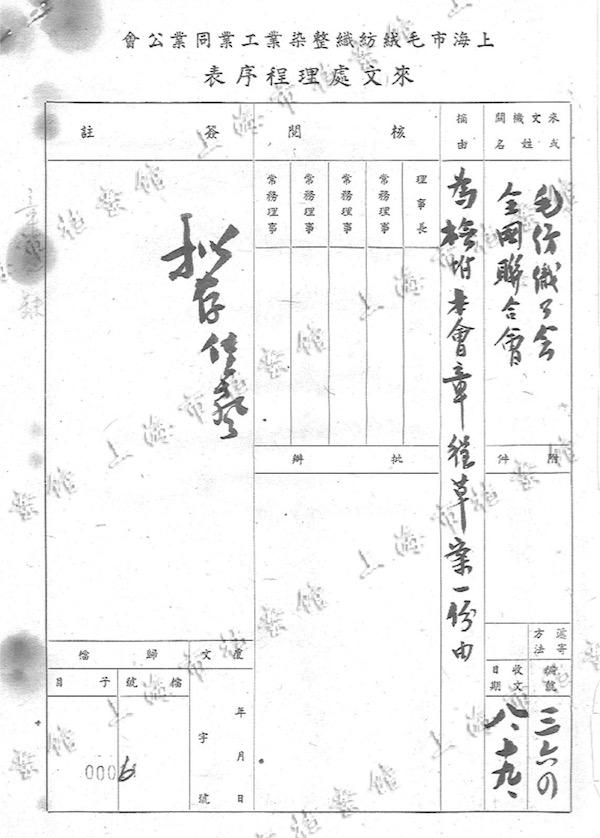 上海市毛絨紡織整染業工業同業公會
來文處理程序表
來文機關或姓名
毛紡織工會
全國聯合會
附件
遞寄方法
編號
三六04
收文日期
八、十九、
摘由
為檢附本會章程草案一份由
核閱
理事長
常務理事
常務理事
常務理事
常務理事
批辦
簽註
擬存
覆文
年月日
字號
歸檔
檔號
子目
0006
上海市檔案館